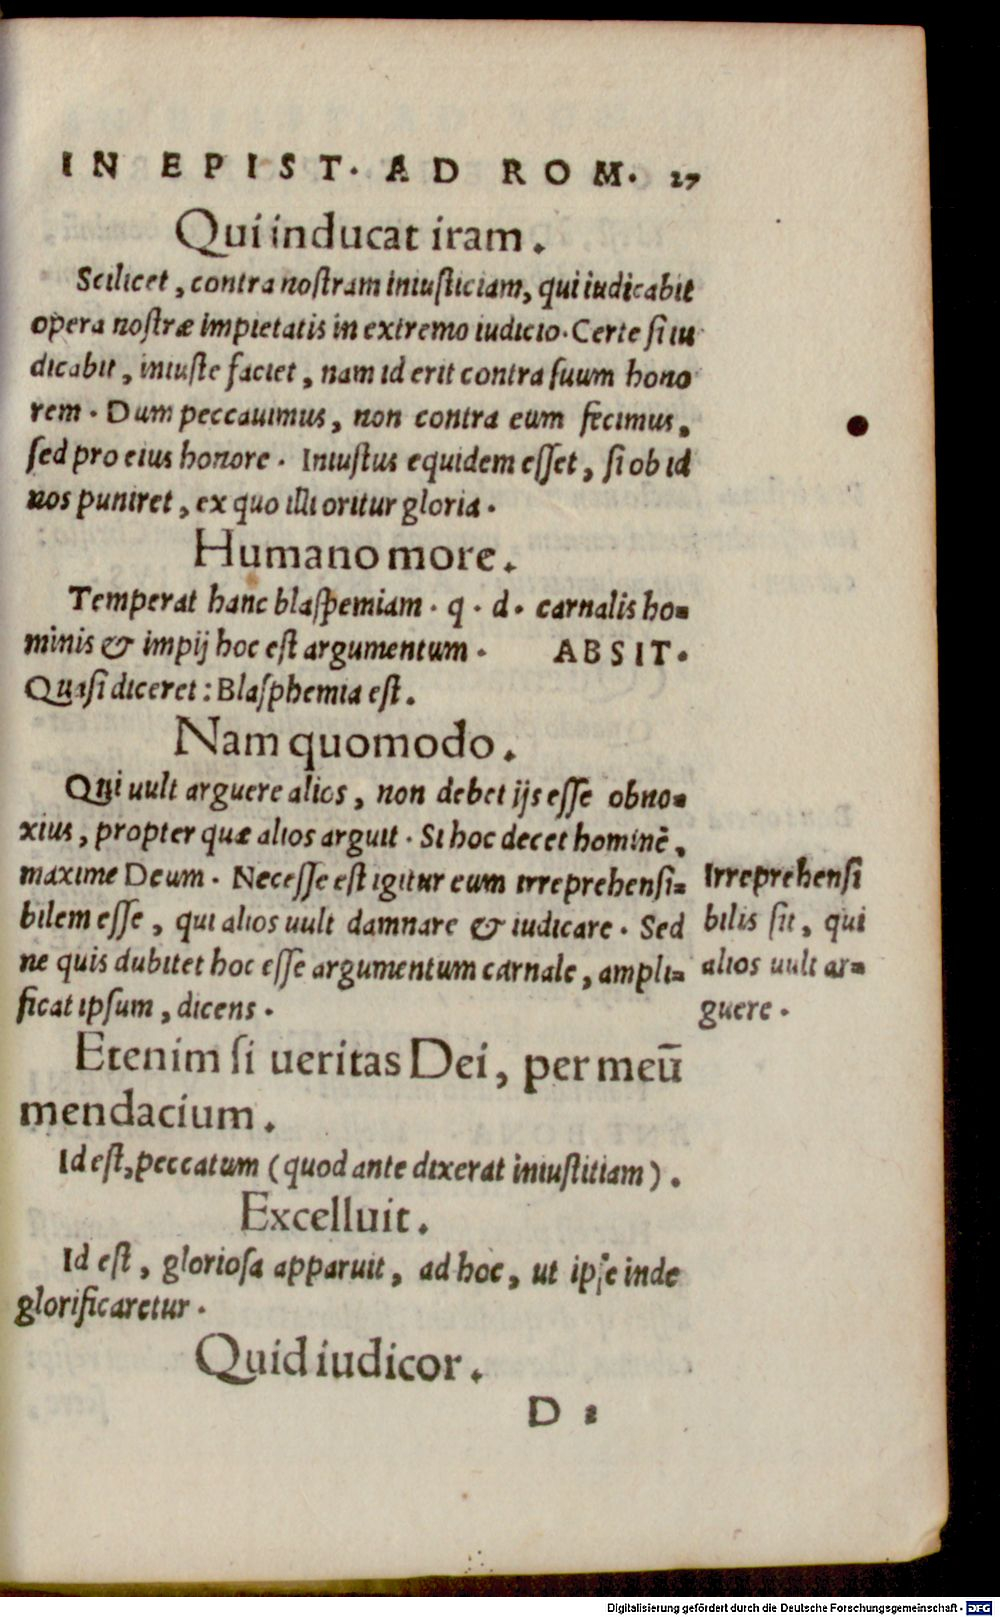 IN EPIST. AD ROM. 27
Qui inducat iram.
Scilicet, contra nostram iniusticiam, qui iudicabit
opera nostræ impietatis in extremo iudicio. Certe si iu
dicabit, iniuste faciet, nam id erit contra suum hono
rem. Dum peccauimus, non contra eum fecimus,
sed pro eius honore. Iniustus equidem esset, si ob id
nos puniret, ex quo illi oritur gloria.
Humano more.
Temperat hanc blaspemiam. q. d. carnalis ho=
minis & impij hoc est argumentum. ABSIT.
Quasi diceret: Blasphemia est.
Nam quomodo.
Qui uult arguere alios, non debet ijs esse obno=
xius, propter quæ alios arguit. Si hoc decet hominē,
maxime Deum. Necesse est igitur eum irreprehensi=
bilem esse, qui alios uult damnare & iudicare. Sed
ne quis dubitet hoc esse argumentum carnale, ampli=
ficat ipsum, dicens.
Irreprehensi
bilis sit, qui
alios uult ar=
guere.
Etenim si ueritas Dei, per meū
mendacium.
Id est, peccatum (quod ante dixerat iniustitiam).
Excelluit.
Id est, gloriosa apparuit, ad hoc, ut ipse inde
glorificaretur.
Quid iudicor.
D 2
Digitalisierung gefördert durch die Deutsche Forschungsgemeinschaft - DFG